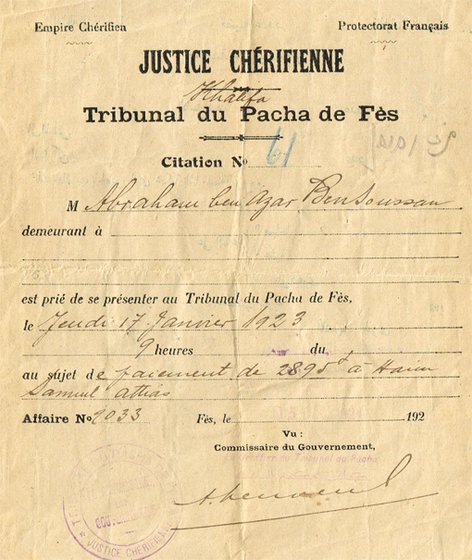 Empire Chérifien Protectorat Français
JUSTICE CHÉRIFIENNE
Khalifa
Tribunal du Pacha de Fès
Citation No 61
M Abraham ben Azar Bensoussan
demeurant à
est prié de se présenter au Tribunal du Pacha de Fès,
le Jeudi 17 Janvier 1923
9 heures du
au sujet de paiement de 2895f à Haim
Samuel Attias
Affaire No 2033 Fès, le 192
Vu :
Commissaire du Gouvernement,
Tribunal du Pacha
JUSTICE CHÉRIFIENNE